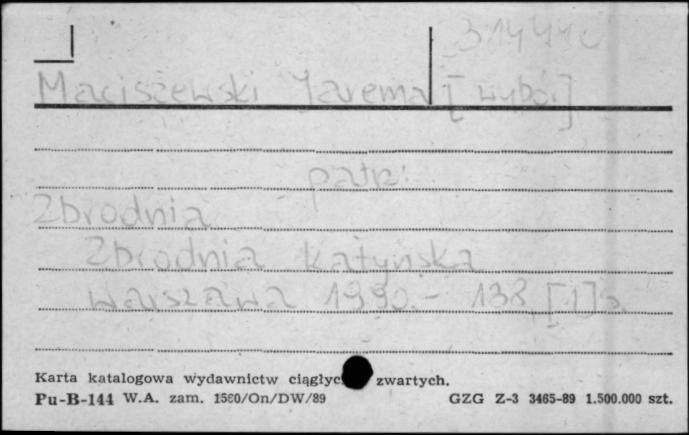 Maciszewski Jarema [wybór]
patrz:
Zbrodnia
Zbrodnia katyńska
Warszawa 1990.- 138,[1]s.
Karta katalogowa wydawnictw ciągłyc zwartych.
Pu-B-144 W.A. zam. 1560/On/DW/89 GZG Z-3 3465-89 1.500.000 szt.